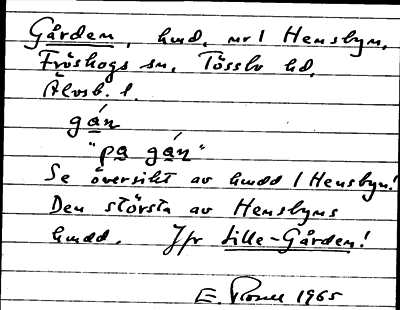 Gården, hmd, nr 1 Hensbyn,
Fröskogs sn, Tössbo hd,
Älvsb. l.
gán
"pa gán"
Se översikt av hmdd i Hensbyn!
Den största av Hensbyns
hmdd. Jfr Lille-Gården!
E. 1965